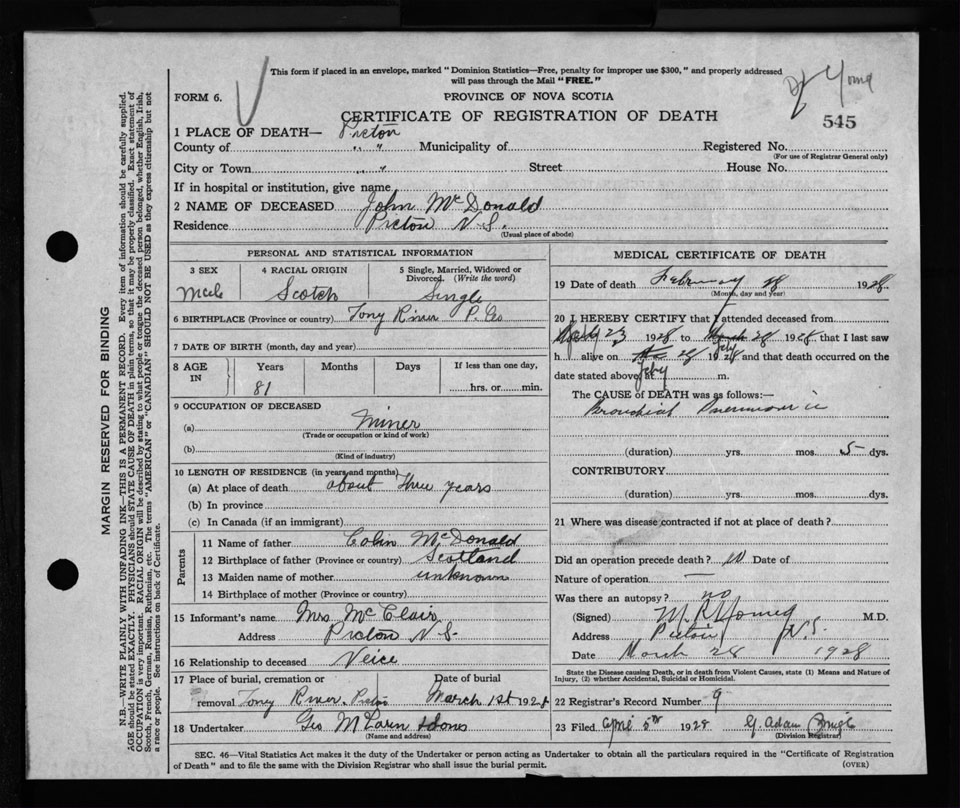 This form if placed in an envelope, marked "Dominion Statistics—Free, penalty for improper use $300," and properly addressed
will pass through the Mail "FREE."
Young
FORM 6.
PROVINCE OF NOVA SCOTIA
CERTIFICATE OF REGISTRATION OF DEATH
545
1 PLACE OF DEATH— Pictou
County of " " Municipality of Registered No.
(For use of Registrar General only)
City or Town " Street House No.
If in hospital or institution, give name
2 NAME OF DECEASED John McDonald
Residence Pictou N.S.
(Usual place of abode)
PERSONAL AND STATISTICAL INFORMATION
3 SEX 4 RACIAL ORIGIN 5 Single, Married, Widowed or
Divorced. (Write the word)
Male Scotch Single
6 BIRTHPLACE (Province or country) Tony River P. Co
7 DATE OF BIRTH (month, day and year)
8 AGE
IN
Years Months Days If less than one day,
81 hrs. or min.
9 OCCUPATION OF DECEASED
(a) Miner
(Trade or occupation or kind of work)
(b)
(Kind of industry)
10 LENGTH OF RESIDENCE (in years and months)
(a) At place of death about three years
(b) In province
(c) In Canada (if an immigrant)
Parents
11 Name of father Colin McDonald
12 Birthplace of father (Province or country) Scotland
13 Maiden name of mother unknown
14 Birthplace of mother (Province or country)
15 Informant's name Mrs McClair
Address Pictou N.S.
16 Relationship to deceased Neice
17 Place of burial, cremation or Date of burial
removal Tony River. Pictou March 1st 192
18 Undertaker Geo McLaren & Sons
(Name and address)
MEDICAL CERTIFICATE OF DEATH
19 Date of death February 28 1928
(Month, day and year)
20 I HEREBY CERTIFY that I attended deceased from
23 1928 to March 28 1928 that I last saw
Feby
h alive on 28 1928 and that death occurred on
date stated above, at m.
Feby
The CAUSE OF DEATH was as follows:—
Bronchial Pneumonia
(duration) yrs. mos. 5 dys.
CONTRIBUTORY
(duration) yrs. mos. dys.
21 Where was disease contracted if not at place of death?
Did an operation precede death? Date of
Nature of operation —
Was there an autopsy? no
(Signed) M R Young M.D.
Address Pictou N.S.
Date March 28 1928
State the Disease causing Death, or in death from Violent Causes, state (1) Means and Nature of
Injury, (2) whether Accidental, Suicidal or Homicidal.
22 Registrar's Record Number 9
23 Filed 5th 1928 G. Adam
(Division Registrar)
SEC. 46—Vital Statistics Act makes it the duty of the Undertaker or person acting as Undertaker to obtain all the particulars required in the "Certificate of Registration
of Death" and to file the same with the Division Registrar who shall issue the burial permit. (OVER)
MARGIN RESERVED FOR BINDING
N.B.—WRITE PLAINLY WITH UNFADING INK—THIS IS A PERMANENT RECORD. Every item of information should be carefully supplied.
AGE should be stated EXACTLY. PHYSICIANS should STATE CAUSE OF DEATH in plain terms, so that it may be properly classified. Exact statement of
OCCUPATION is very important. RACIAL ORIGIN will be described by stating to what people or tongue the deceased person belonged, whether English, Irish,
Scotch, French, German, Russian, Ruthenian, etc. The terms "AMERICAN" or "CANADIAN" SHOULD NOT BE USED as they express citizenship but not
a race or people. See instructions on back of Certificate.